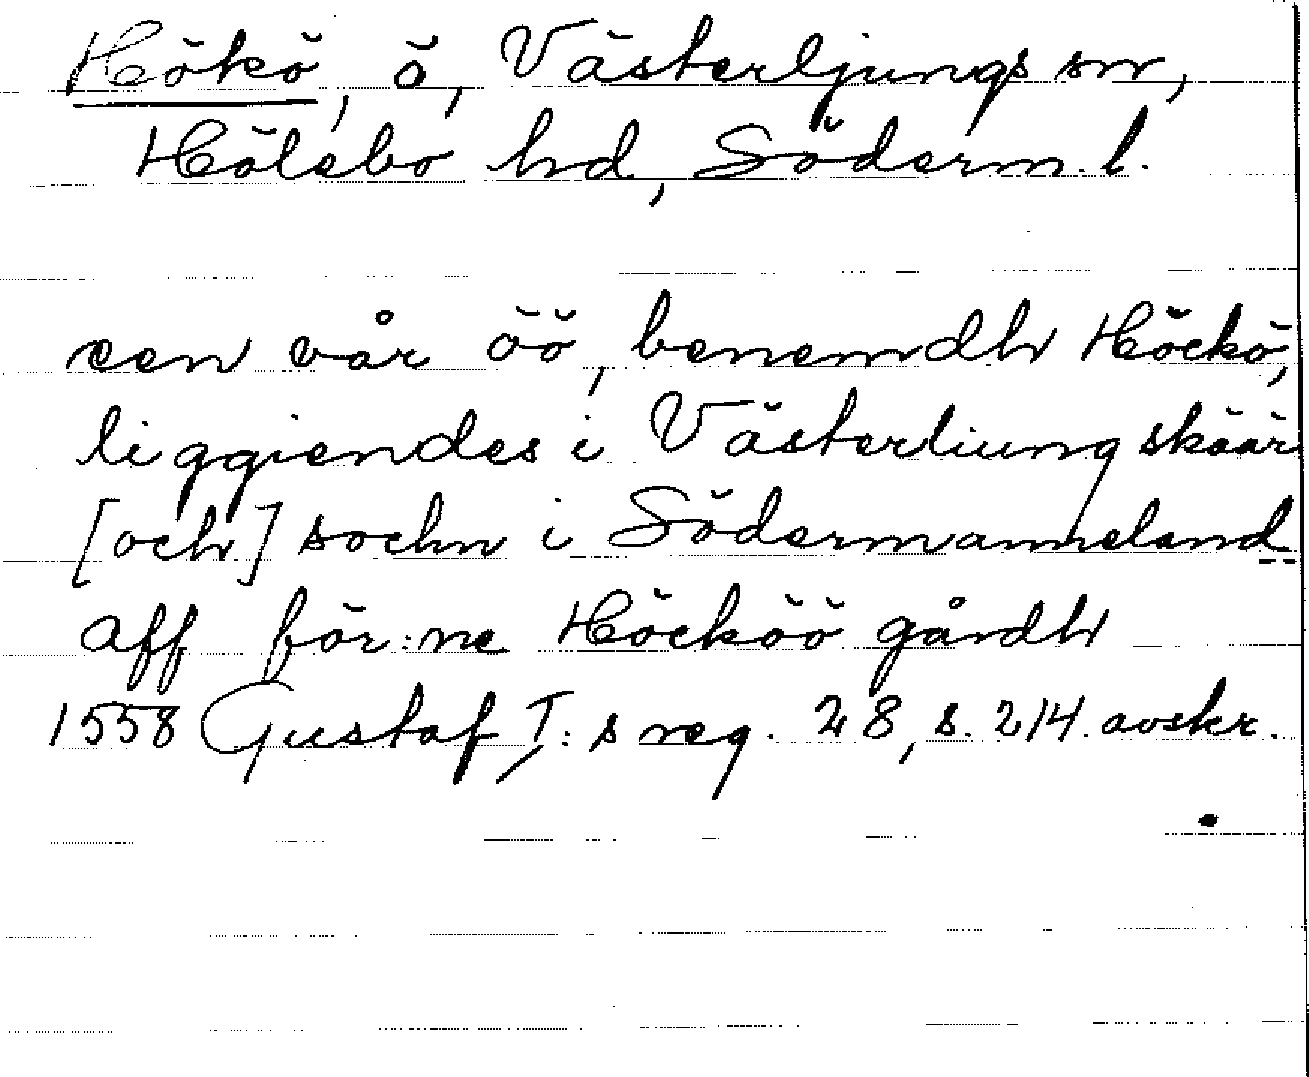 Hökö, ö, Västerljungs sn,
Hölebo hd, Söderm. l.
een vår öö, benemdh Höckö,
liggiendes i Västerliungskäär
[och] sochn i Södermanneland
aff för:ne Höcköö gårdh
1558 Gustaf I:s reg. 28, s. 214. avskr.